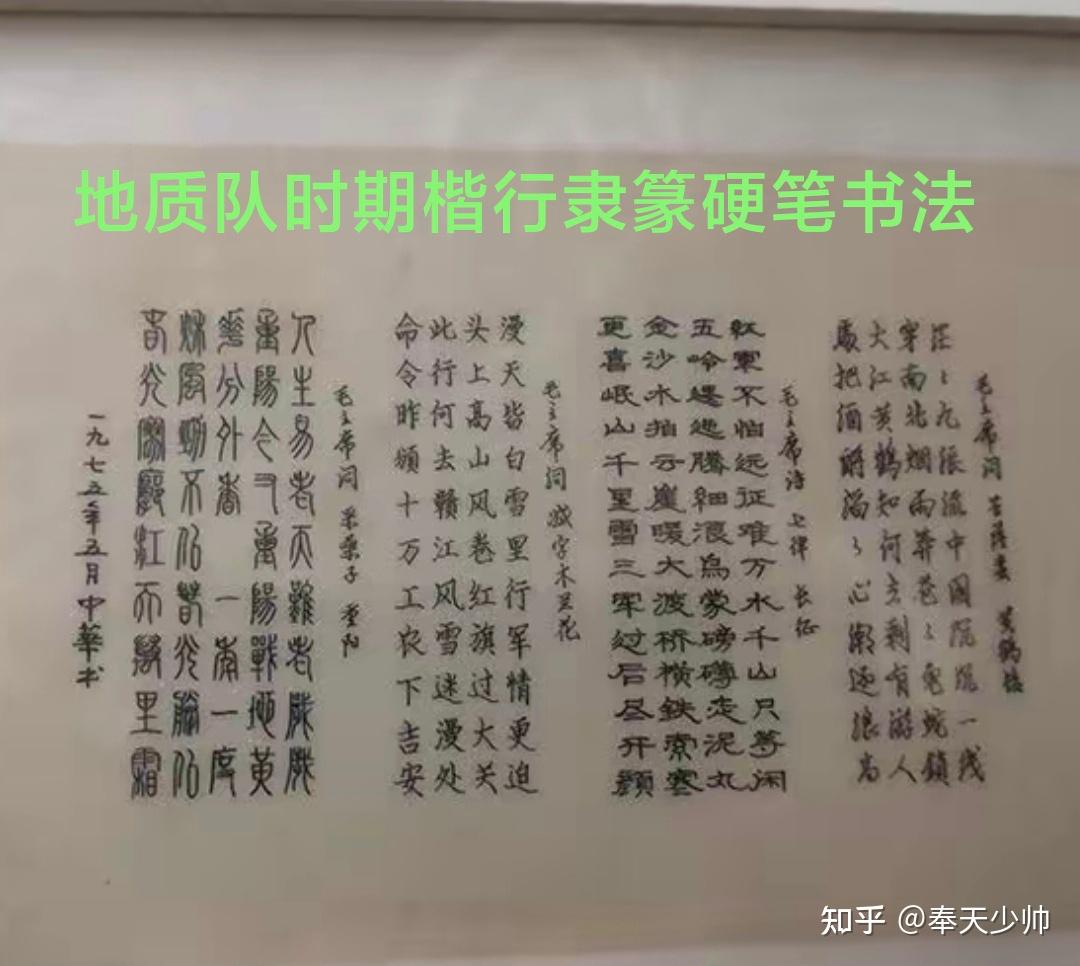 地质队时期楷行隶篆硬笔书法
毛主席词 菩萨蛮 黄鹤楼
茫々九派流中國沉沉一线
穿南北烟雨莽苍々龟蛇鎖
大江黄鹤知何去剩有游人
處把酒酹滔々心潮逐浪高
毛主席诗 七律 长征
紅軍不怕远征难万水千山只等闲
五岭逶迤腾细浪烏蒙磅礴走泥丸
金沙水拍云崖暖大渡桥横鉄索寒
更喜岷山千里雪三军过后尽开顔
毛主席词 减字木兰花
漫天皆白雪里行军情更迫
头上高山风卷红旗过大关
此行何去赣江风雪迷漫处
命令昨頒十万工农下吉安
毛主席词 采桑子 重阳
人生易老天難老歲歲
重陽今又重陽戰地黃
花分外香 一年一度
秋風勁不似春光勝似
春光寥廓江天萬里霜
一九七五年五月中華书
知乎 @奉天少帅